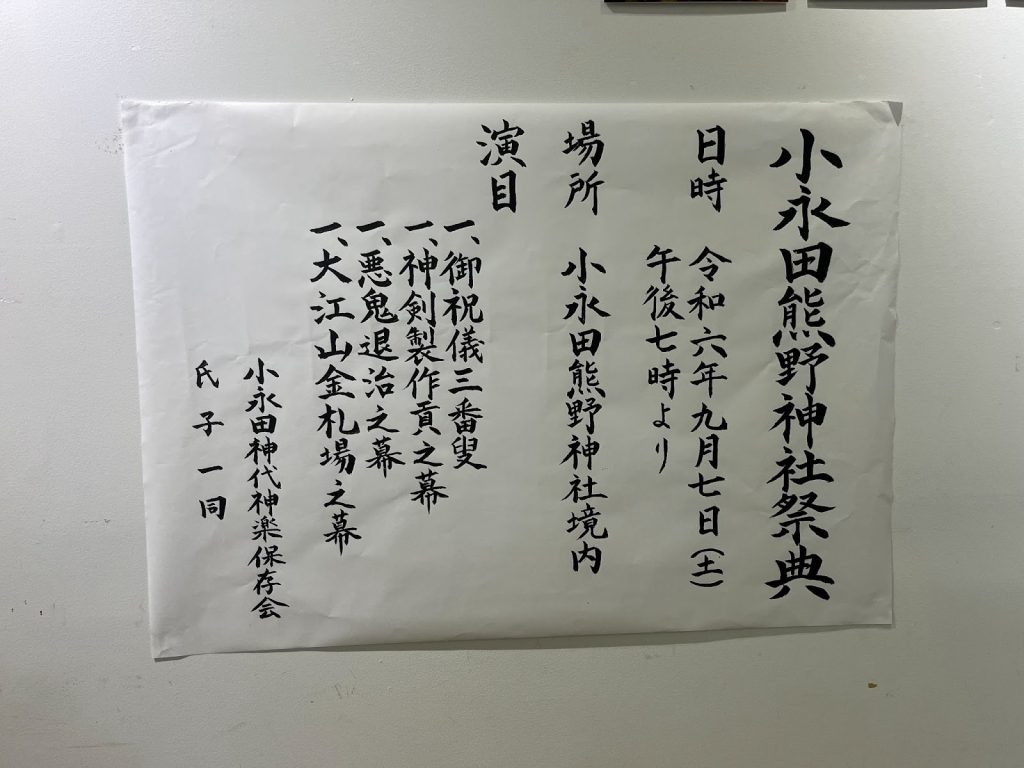 小永田熊野神社祭典
日時 令和六年九月七日(土)
午後七時より
場所 小永田熊野神社境内
演目
一、御祝儀三番叟
一、神剣製作貢之幕
一、悪鬼退治之幕
一、大江山金札場之幕
小永田神代神楽保存会
氏子一同